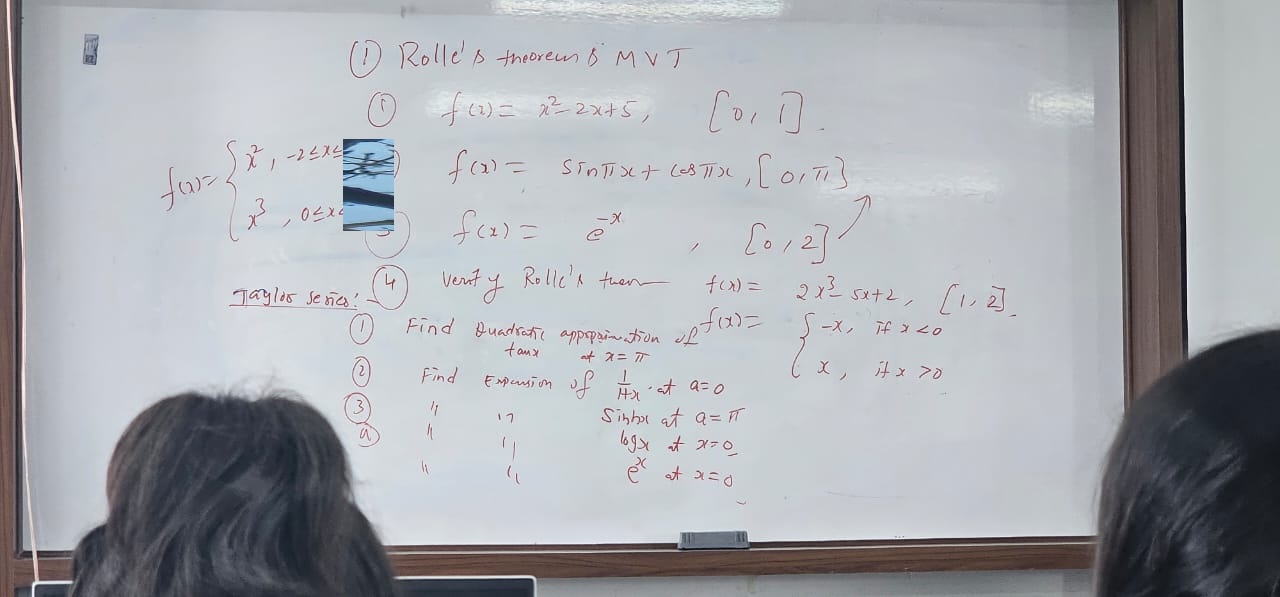 ① Rolle's theorem & MVT
① f(x) = x² - 2x + 5, [0, 1].
f(x) = { x², -2 ≤ x ≤
x³, 0 ≤ x
f(x) = sin πx + cos πx, [0, π]
f(x) = e^-x, [0, 2]
④ Verify Rolle's f(x) = 2x³ - 5x + 2, [1, 2].
Taylor series:
f(x) = { -x, if x < 0
x, if x > 0
① Find Quadratic appopximation of tanx at x = π
② Find Expansion of 1/1+x at a = 0
③ " " Sinhx at a = π
" " logx at x = 0
" " e^x at x = 0